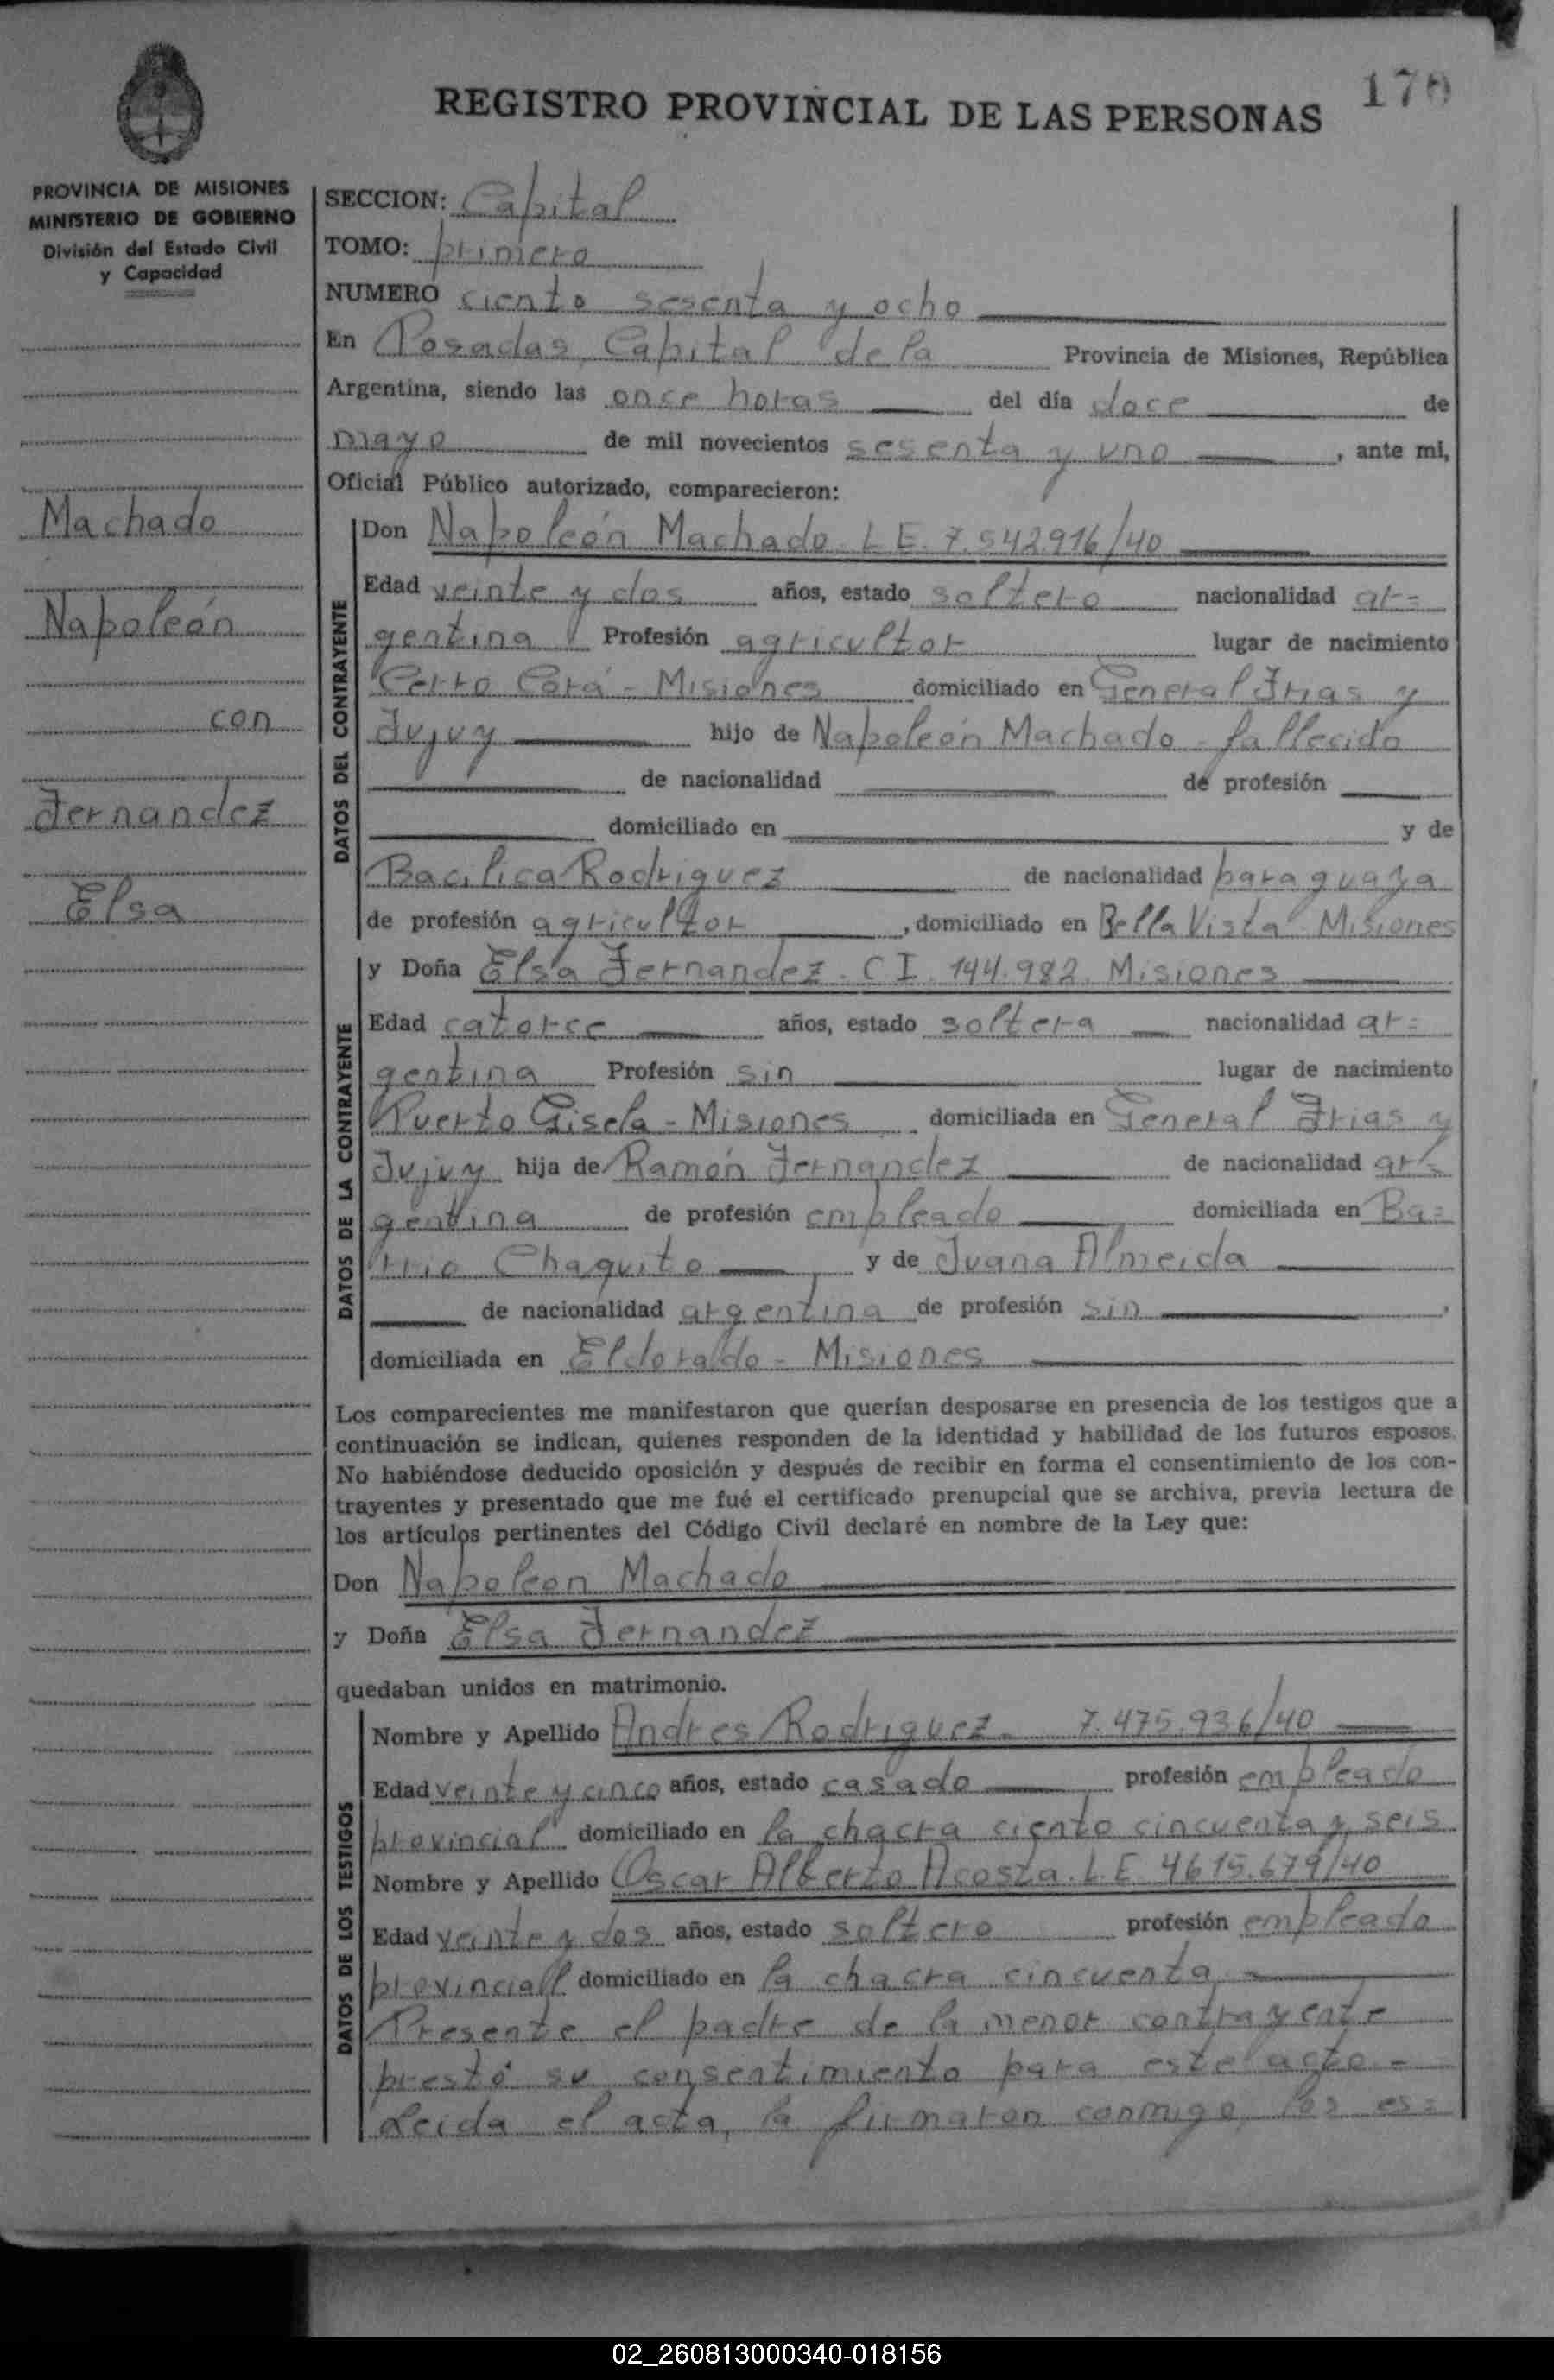 170
REGISTRO PROVINCIAL DE LAS PERSONAS
PROVINCIA DE MISIONES
MINISTERIO DE GOBIERNO
División del Estado Civil
y Capacidad
Machado
Napoleón
con
Fernandez
Elsa
SECCION: Capital
TOMO: primero
NUMERO ciento sesenta y ocho
En Posadas, Capital de la Provincia de Misiones, República
Argentina, siendo las once horas del día doce de
mayo de mil novecientos sesenta y uno, ante mi,
Oficial Público autorizado, comparecieron:
DATOS DEL CONTRAYENTE
Don Napoleón Machado. L.E. 7.542.916/40
Edad veinte y dos años, estado soltero nacionalidad ar=
gentina Profesión agricultor lugar de nacimiento
Cerro Corá - Misiones domiciliado en General Frias y
Jujuy hijo de Napoleón Machado - fallecido
de nacionalidad de profesión
domiciliado en y de
Bacilica Rodriguez de nacionalidad paraguaya
de profesión agricultor, domiciliado en Bella Vista - Misiones
DATOS DE LA CONTRAYENTE
y Doña Elsa Fernandez. C.I. 144.982. Misiones
Edad catorce años, estado soltera nacionalidad ar=
gentina Profesión sin lugar de nacimiento
Puerto Gisela - Misiones domiciliada en General Frias y
Jujuy hija de Ramón Fernandez de nacionalidad ar=
gentina de profesión empleado domiciliada en Ba=
rrio Chaquito y de Juana Almeida
de nacionalidad argentina de profesión sin,
domiciliada en Eldorado - Misiones
Los comparecientes me manifestaron que querían desposarse en presencia de los testigos que a
continuación se indican, quienes responden de la identidad y habilidad de los futuros esposos.
No habiéndose deducido oposición y después de recibir en forma el consentimiento de los con-
trayentes y presentado que me fué el certificado prenupcial que se archiva, previa lectura de
los artículos pertinentes del Código Civil declaré en nombre de la Ley que:
Don Napoleon Machado
y Doña Elsa Fernandez
quedaban unidos en matrimonio.
DATOS DE LOS TESTIGOS
Nombre y Apellido Andres Rodriguez - 7.475.936/40
Edad veinte y cinco años, estado casado profesión empleado
provincial domiciliado en la chacra ciento cincuenta y seis
Nombre y Apellido Oscar Alberto Acosta. L.E. 4615.679/40
Edad veinte y dos años, estado soltero profesión empleado
provincial domiciliado en la chacra cincuenta -
Presente el padre de la menor contrayente
prestó su consentimiento para este acto -
Leida el acta, la firmaron conmigo, los es=
02_260813000340-018156